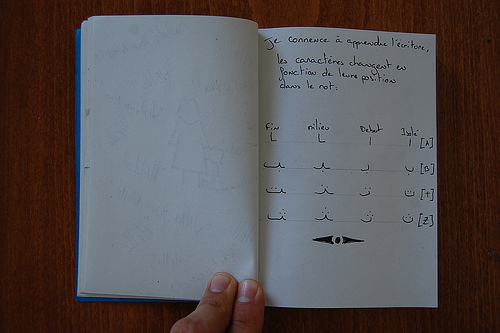 Je commence à apprendre l'écriture,
les caractères changent en
fonction de leur position
dans le mot:
Fin milieu Debut Isolé
ـا ـا ا ا [A]
ـب ـبـ بـ ب [B]
ـت ـتـ تـ ت [t]
ـث ـثـ ثـ ث [Z]